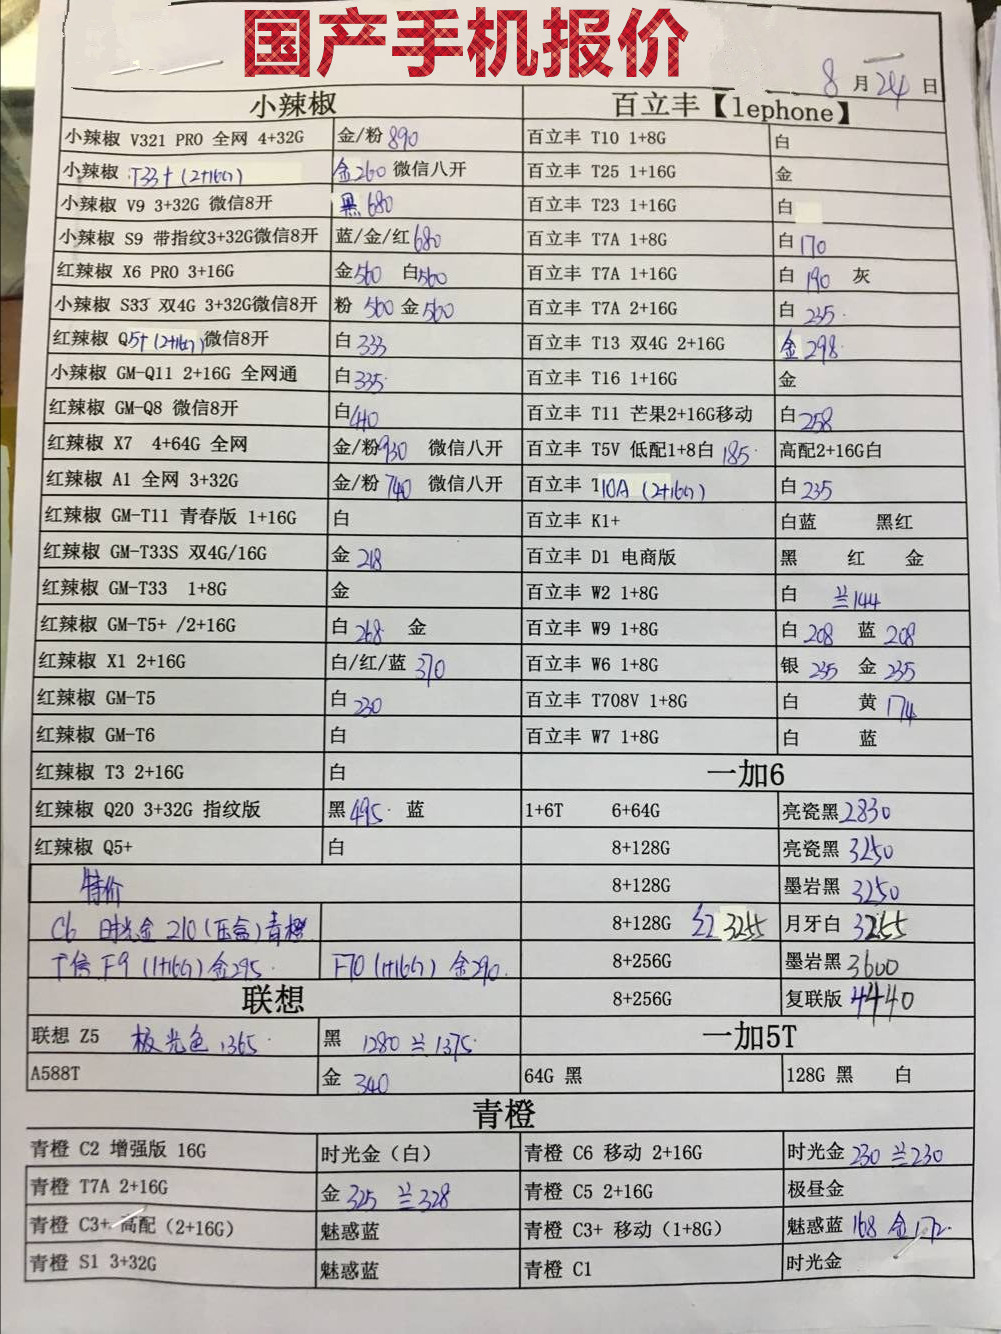 国产手机报价
8月24日
小辣椒 百立丰【lephone】
小辣椒 V321 PRO 全网 4+32G 金/粉 890 百立丰 T10 1+8G 白
小辣椒 T33+ (2+16G) 金260 微信八开 百立丰 T25 1+16G 金
小辣椒 V9 3+32G 微信8开 黑 680 百立丰 T23 1+16G 白
小辣椒 S9 带指纹3+32G微信8开 蓝/金/红 680 百立丰 T7A 1+8G 白 170
红辣椒 X6 PRO 3+16G 金560 白560 百立丰 T7A 1+16G 白 190 灰
小辣椒 S33 双4G 3+32G微信8开 粉 560 金 560 百立丰 T7A 2+16G 白 235
红辣椒 Q5+ (2+16G) 微信8开 白 333 百立丰 T13 双4G 2+16G 金 298
小辣椒 GM-Q11 2+16G 全网通 白 335 百立丰 T16 1+16G 金
红辣椒 GM-Q8 微信8开 白 440 百立丰 T11 芒果2+16G移动 白 258
红辣椒 X7 4+64G 全网 金/粉 930 微信八开 百立丰 T5V 低配1+8白 185 高配2+16G白
红辣椒 A1 全网 3+32G 金/粉 740 微信八开 百立丰 10A (2+16G) 白 235
红辣椒 GM-T11 青春版 1+16G 白 百立丰 K1+ 白蓝 黑红
红辣椒 GM-T33S 双4G/16G 金 218 百立丰 D1 电商版 黑 红 金
红辣椒 GM-T33 1+8G 金 百立丰 W2 1+8G 白 兰144
红辣椒 GM-T5+ /2+16G 白 268 金 百立丰 W9 1+8G 白 208 蓝 208
红辣椒 X1 2+16G 白/红/蓝 370 百立丰 W6 1+8G 银 235 金 235
红辣椒 GM-T5 白 230 百立丰 T708V 1+8G 白 黄 174
红辣椒 GM-T6 白 百立丰 W7 1+8G 白 蓝
红辣椒 T3 2+16G 白 一加6
红辣椒 Q20 3+32G 指纹版 黑 495 蓝 1+6T 6+64G 亮瓷黑 2830
红辣椒 Q5+ 白 8+128G 亮瓷黑 3250
特价 8+128G 墨岩黑 3250
C6 时光金 210 (压盒) 青橙 8+128G 红 3255 月牙白 3255
F9 (1+16G) 金295 F10 (1+16G) 金290 8+256G 墨岩黑 3600
联想 8+256G 复联版 4440
联想 Z5 极光色 1365 黑 1280 兰 1375 一加5T
A588T 金 340 64G 黑 128G 黑 白
青橙
青橙 C2 增强版 16G 时光金（白） 青橙 C6 移动 2+16G 时光金 230 兰230
青橙 T7A 2+16G 金 325 兰 328 青橙 C5 2+16G 极昼金
青橙 C3+ 高配（2+16G） 魅惑蓝 青橙 C3+ 移动（1+8G） 魅惑蓝 168 金172
青橙 S1 3+32G 魅惑蓝 青橙 C1 时光金